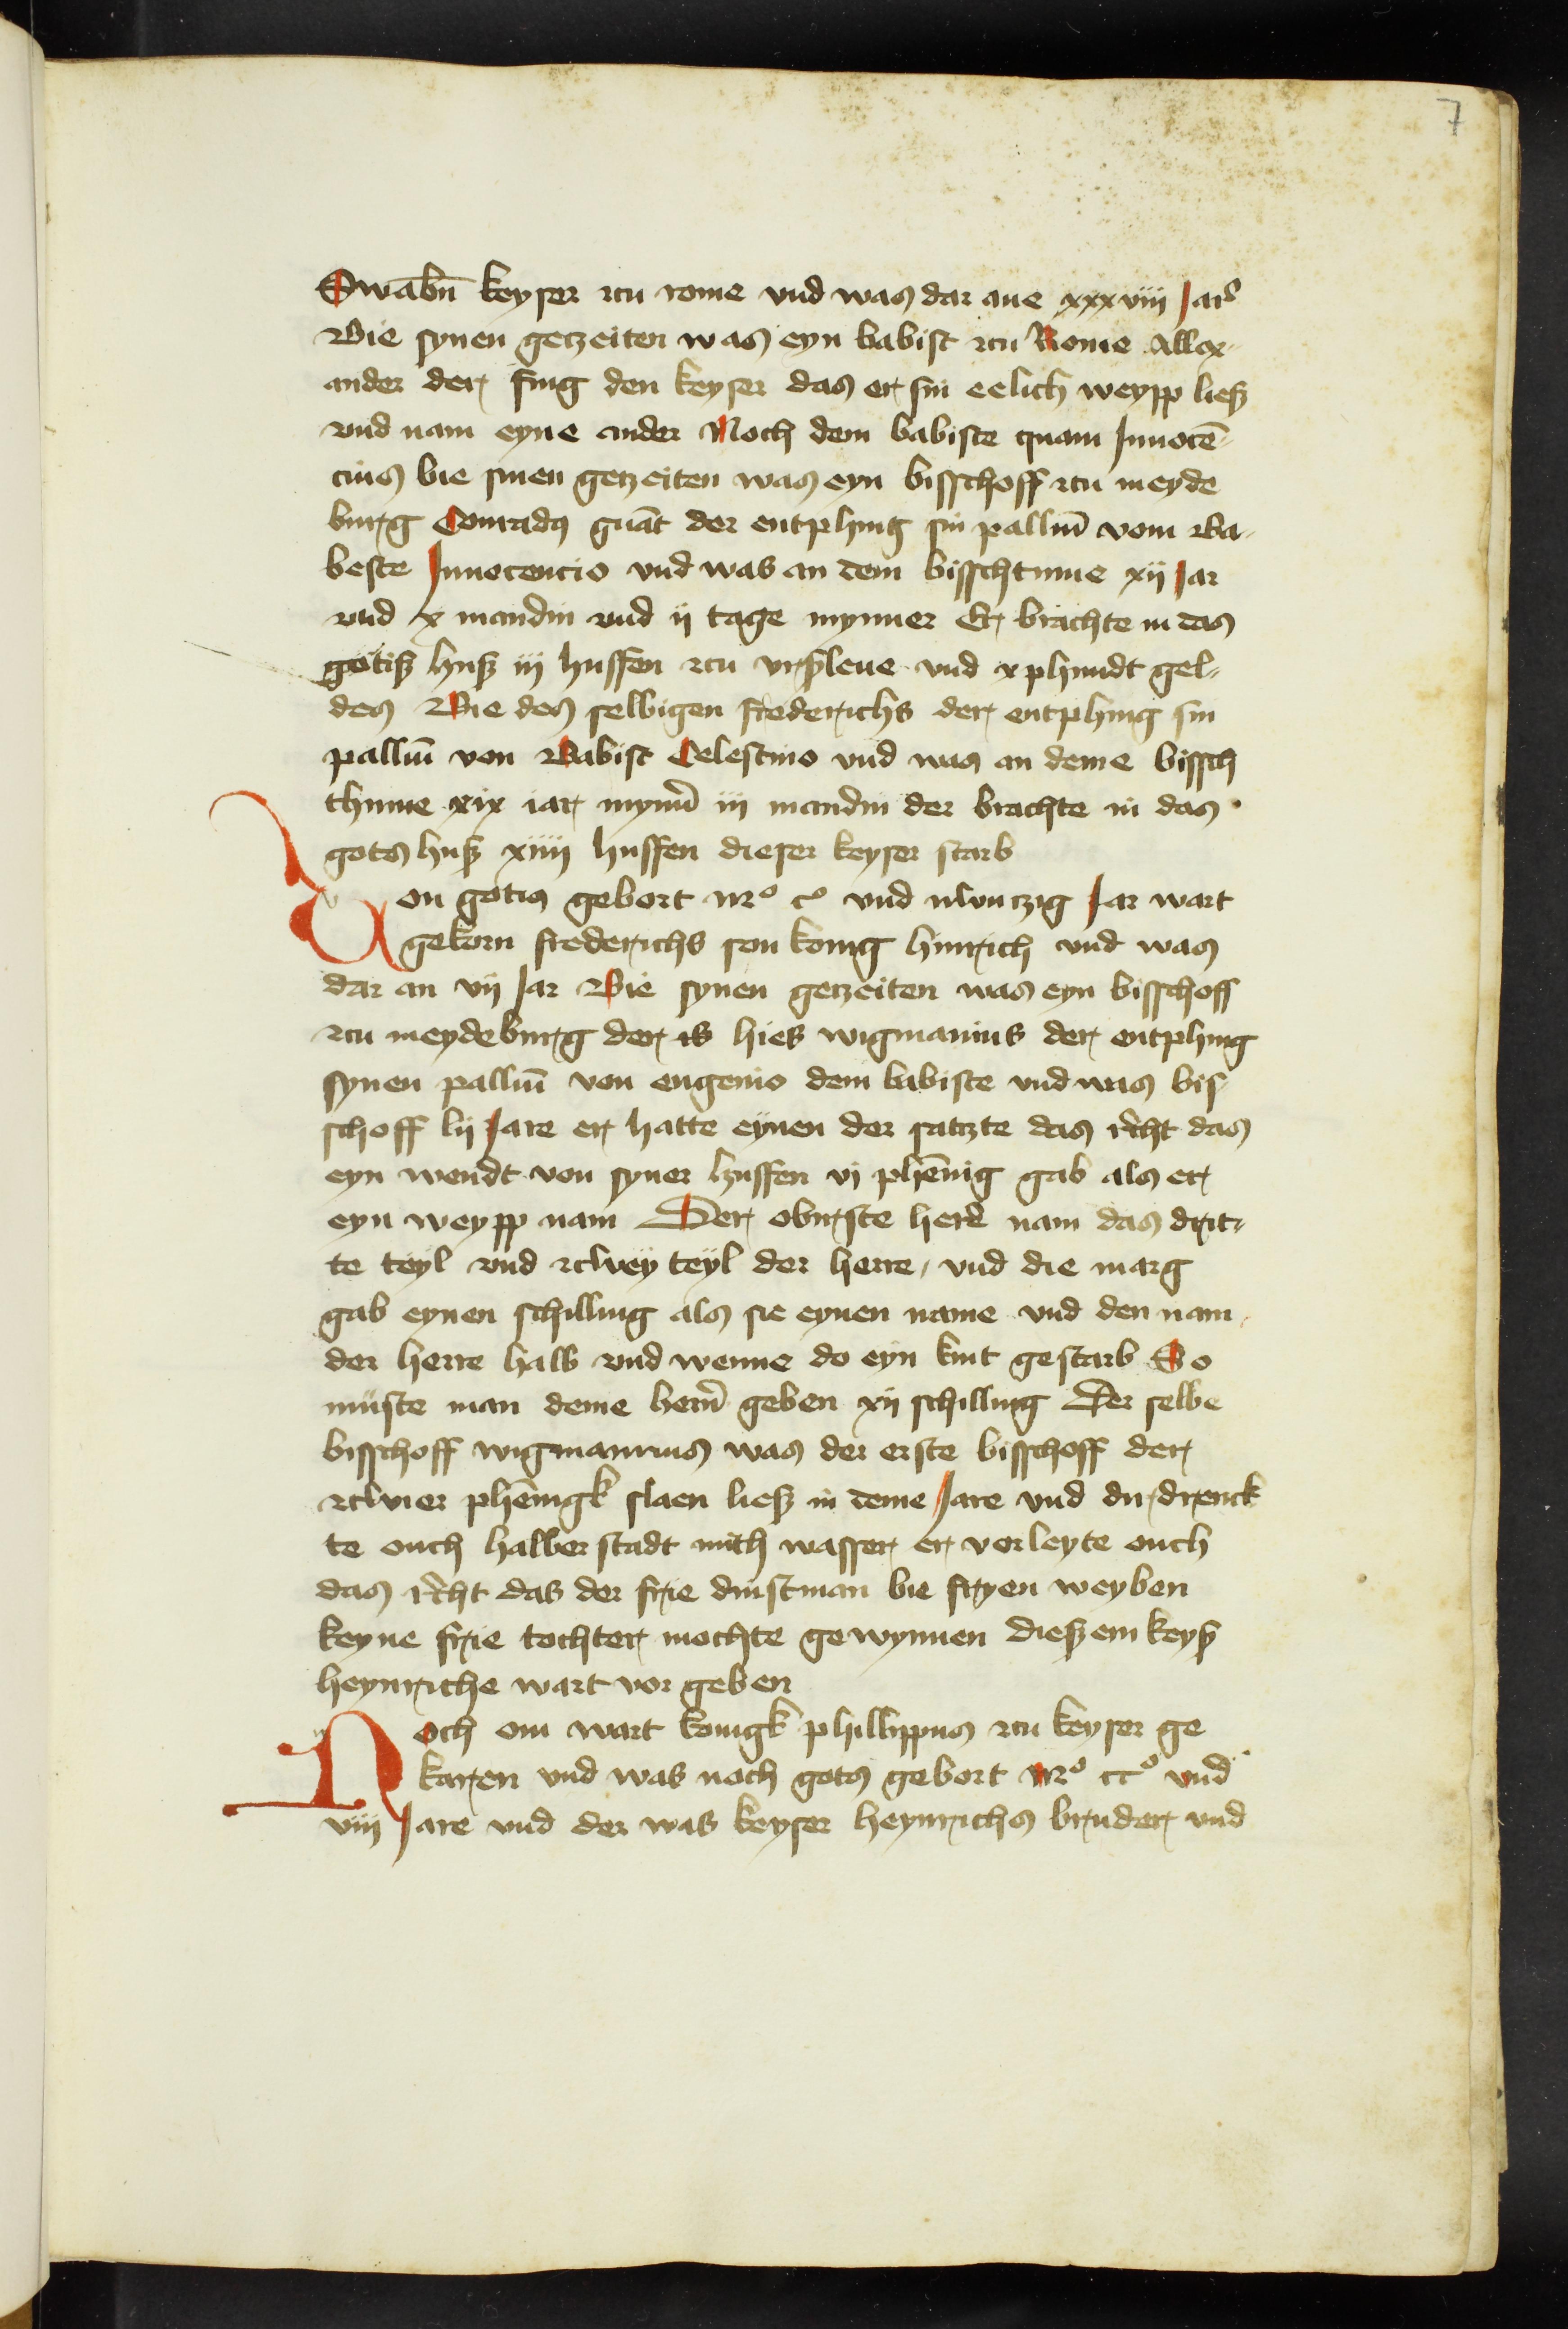 7
Swabn̄ keyser zcu rome vnd was dar ane xxxviii Jar
Bie synen getzeiten was eyn babist zcu Rome Allex-
ander der fing den keyser das er sin eelich weypp liesz
vnd nam eyne ander Noch dem babiste quam Innocē-
cius bie sinen getzeiten was eyn bisschoff zcu meyde
burg Conradus der entphing sin palliū vom Ba-
beste Innocencio vnd was an dem bisschtume xij Jar
vnd x mandin vnd ij tage mynner Er brachte in das
gotisz husz iij huffen zcu vrszleue vnd x phundt gel-
des Bie des selbigen frederichs der entphing sin
palliū von Babist Celestino vnd was an deme bissch
thume xix iar mynn̄ iij mandin der brachte in das
gots husz xiiij huffen dieser keyser starb
Von gotis gebort mͦ cͦ vnd nwntzig Jar wart
gekorn frederichs son konig hinrich vnd was
dar an vij Jar Bie synen getzeiten was eyn bisschoff
zcu meydeburg der is hies wigmannus der entphing
synen palliū von eugenio dem babiste vnd was bis
schoff lij Jare er hatte eynen der satzte das recht das
eyn wendt von syner huffen vj phēnig gab als er
eyn weypp nam Der oburste here nam das drit-
te teyl vnd zcwey teyl der herre, vnd die marg
gab eynen schilling als sie eynen name vnd den nam
der herre halb vnd wenne do eyn kint gestarb So
muste man deme hern̄ geben xij schilling Der selbe
bisschoff wigmannus was der erste bisschoff der
zcwier phēnigk slaen liesz in deme Jare vnd dir drenck
te ouch halberstadt mith wasser er vorleyte ouch
das recht das der frie dinstman bie fryen weyben
keyne frie tochter mochte gewynnen dieszem keys
heynriche wart vor geben
Noch om wart konigk phillippus zcu keyser ge
karen vnd was noch gots gebort mͦ ccͦ vnd
viij Jare vnd der was keyser heynrichs bruder vnd